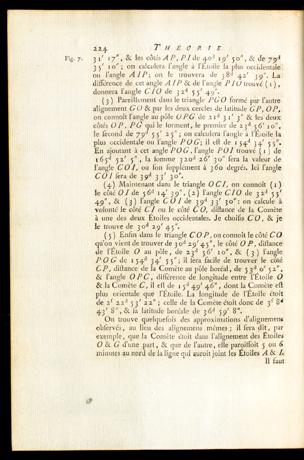 224 THÉORIE
Fig. 7. 31′ 17″, & les côtés AP, PI de 40d 19′ 50″, & de 79d
35′ 10″ ; on calculera l'angle à l'Étoile la plus occidentale
ou l'angle AIP ; on le trouvera de 38d 42′ 39″. La
différence de cet angle AIP & de l'angle PIO trouvé (1),
donnera l'angle CIO de 32d 55′ 49″.
(3) Pareillement dans le triangle PGO formé par l'autre
alignement GO & par les deux cercles de latitude GP, OP,
on connoît l'angle au pôle OPG de 21d 31′ 3″ & les deux
côtés OP, PG qui le forment, le premier de 23d 56′ 10″,
le second de 79d 55′ 25″ ; on calculera l'angle à l'Étoile la
plus occidentale ou l'angle POG ; il est de 154d 34′ 55″.
En ajoutant à cet angle POG, l'angle POI trouvé (1) de
165d 52′ 5″, la somme 320d 26′ 30″ sera la valeur de
l'angle COI, ou son supplément à 360 degrés. Ici l'angle
COI sera de 39d 33′ 30″.
(4) Maintenant dans le triangle OCI, on connoît (1)
le côté OI de 56d 14′ 39″, (2) l'angle CIO de 32d 55′
49″, & (3) l'angle COI de 39d 33′ 30″ : on calcule à
volonté le côté CI ou le côté CO, distance de la Comète
à une des deux Étoiles occidentales. Je choisis CO, & je
le trouve de 30d 29′ 45″.
(5) Enfin dans le triangle COP, on connoît le côté CO
qu'on vient de trouver de 30d 29′ 45″, le côté OP, distance
de l'Étoile O au pôle, de 23d 56′ 10″, & (3) l'angle
POG de 154d 34′ 55″ ; il sera facile de trouver le côté
CP, distance de la Comète au pôle boréal, de 53d 0′ 52″,
& l'angle OPC, différence de longitude entre l'Étoile O
& la Comète C, il est de 15d 49′ 46″, dont la Comète est
plus orientale que l'Étoile. La longitude de l'Étoile étoit
de 2f 22d 53′ 22″ ; celle de la Comète étoit donc de 3f 8d
43′ 8″, & sa latitude boréale de 36d 59′ 8″.
On trouve quelquefois des approximations d'alignemens
observés, au lieu des alignemens mêmes ; il sera dit, par
exemple, que la Comète étoit dans l'alignement des Étoiles
O & G d'une part, & que de l'autre, elle paroissoit 5 ou 6
minutes au nord de la ligne qui auroit joint les Étoiles A & I.
Il faut